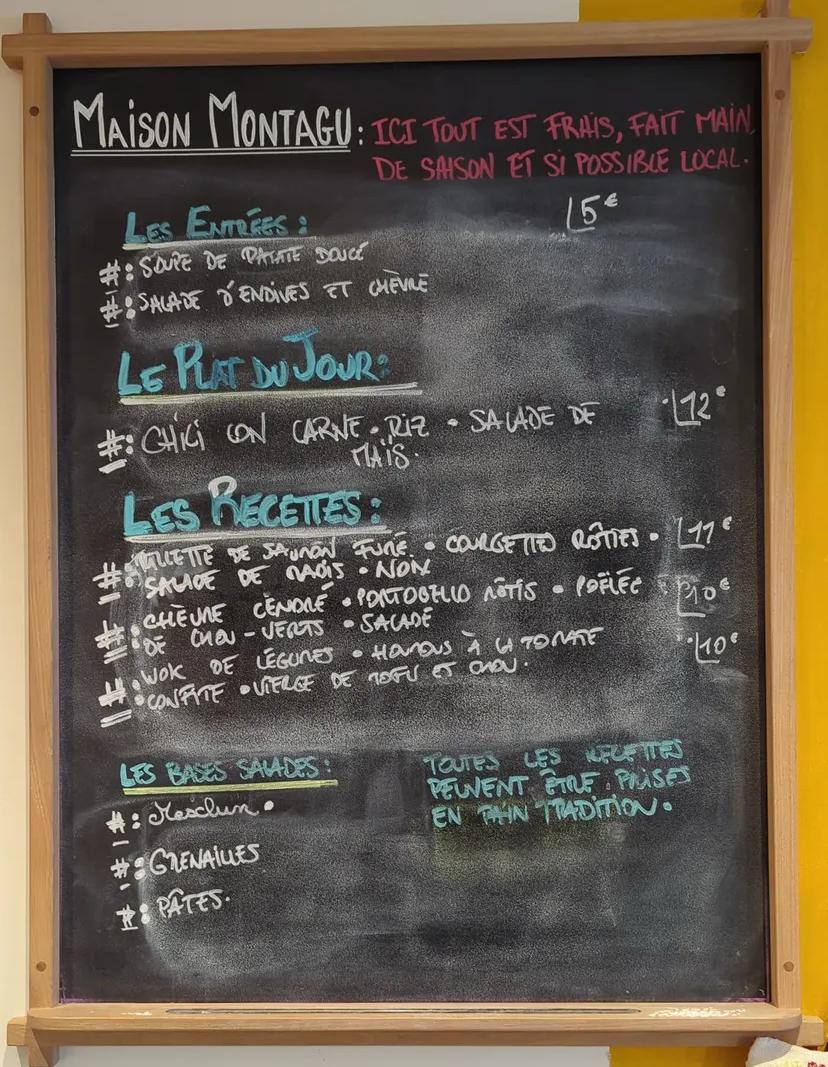 MAISON MONTAGU: ICI TOUT EST FRAIS, FAIT MAIN,
DE SAISON ET SI POSSIBLE LOCAL.
LES ENTRÉES: 5€
#: SOUPE DE PATATE DOUCE
#: SALADE D'ENDIVES ET CHÈVRE
LE PLAT DU JOUR:
#: CHILI CON CARNE • RIZ • SALADE DE 12€
MAÏS.
LES RECETTES:
#: RILLETTE DE SAUMON FUMÉ • COURGETTES RÔTIES • 11€
SALADE DE MAÏS • NON
#: CHÈVRE CENDRÉ • PORTOBELLO RÔTIS • POÊLÉE 10€
DE CHOU-VERTS • SALADE
#: WOK DE LÉGUMES • HOUMOUS À LA TOMATE 10€
CONFITE • VIERGE DE TOFU ET CHOU.
LES BASES SALADES:
#: Mesclun.
#: GRENAILLES
#: PÂTES.
TOUTES LES RECETTES
PEUVENT ÊTRE PRISES
EN PAIN TRADITION.